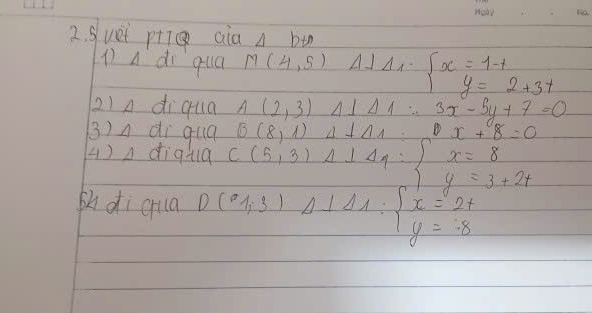 2.5 viết PTTQ của Δ bt
1) Δ đi qua M(4,5) Δ⊥Δ1: { x = 1-t
y = 2+3t
2) Δ đi qua A(2,3) Δ⊥Δ1: 3x-5y+7=0
3) Δ đi qua B(8,1) Δ⊥Δ1: x+8=0
4) Δ đi qua C(5,3) Δ⊥Δ1: { x = 8
y = 3+2t
5) Δ đi qua D(-1;3) Δ⊥Δ1: { x = 2t
y = -8